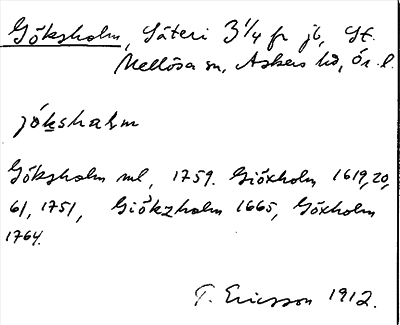 Göksholm, Säteri 3 1/4 fr jb, St.
Mellösa sn, Askers hd, Ör. l.
jöksha̱lm
Göksholm ml, 1759. Giöxholm 1619, 20,
61, 1751, Giökzholm 1665, Göxholm
1764.
T. Ericsson 1912.